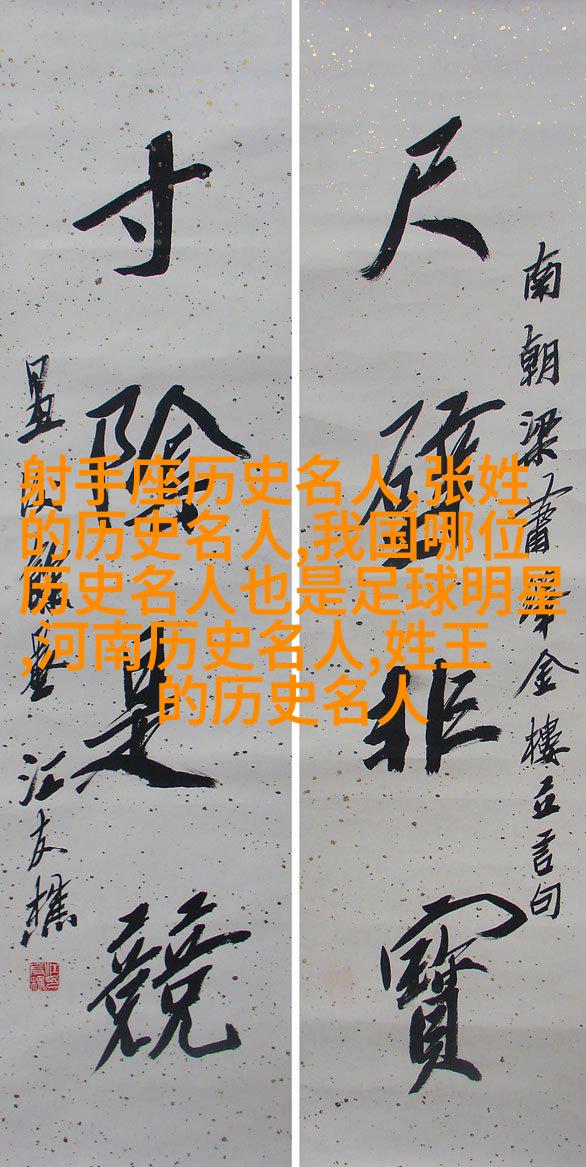 尺璧非寶
南朝梁蕭繹金樓立言句
寸陰是競
汪友樵
射手座历史名人,张姓
的历史名人,我国哪位
历史名人也是足球明星
,河南历史名人,姓王
的历史名人